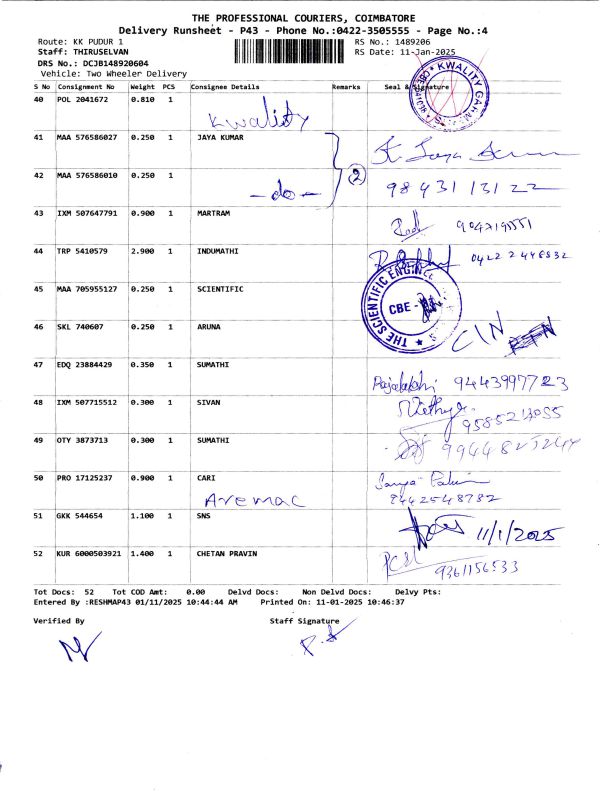 THE PROFESSIONAL COURIERS, COIMBATORE
Delivery Runsheet - P43 - Phone No.:0422-3505555 - Page No.:4
Route: KK PUDUR 1 RS No.: 1489206
Staff: THIRUSELVAN RS Date: 11-Jan-2025
DRS No.: DCJB148920604
Vehicle: Two Wheeler Delivery
S No Consignment No Weight PCS Consignee Details Remarks Seal & Signature
40 POL 2041672 0.810 1 Kwality
41 MAA 576586027 0.250 1 JAYA KUMAR
42 MAA 576586010 0.250 1 -do- 2 9843113122
43 IXM 507647791 0.900 1 MARTRAM
44 TRP 5410579 2.900 1 INDUMATHI 0422 2448832
THE SCIENTIFIC ENGINEE
CBE -
45 MAA 705955127 0.250 1 SCIENTIFIC
46 SKL 740607 0.250 1 ARUNA
47 EDQ 23884429 0.350 1 SUMATHI 9443997723
48 IXM 507715512 0.300 1 SIVAN 9585213055
49 OTY 3873713 0.300 1 SUMATHI
50 PRO 17125237 0.900 1 CARI
Aremac 9442548782
51 GKK 544654 1.100 1 SNS 11/1/2025
52 KUR 6000503921 1.400 1 CHETAN PRAVIN 9361156533
Tot Docs: 52 Tot COD Amt: 0.00 Delvd Docs: Non Delvd Docs: Delvy Pts:
Entered By :RESHMAP43 01/11/2025 10:44:44 AM Printed On: 11-01-2025 10:46:37
Verified By Staff Signature